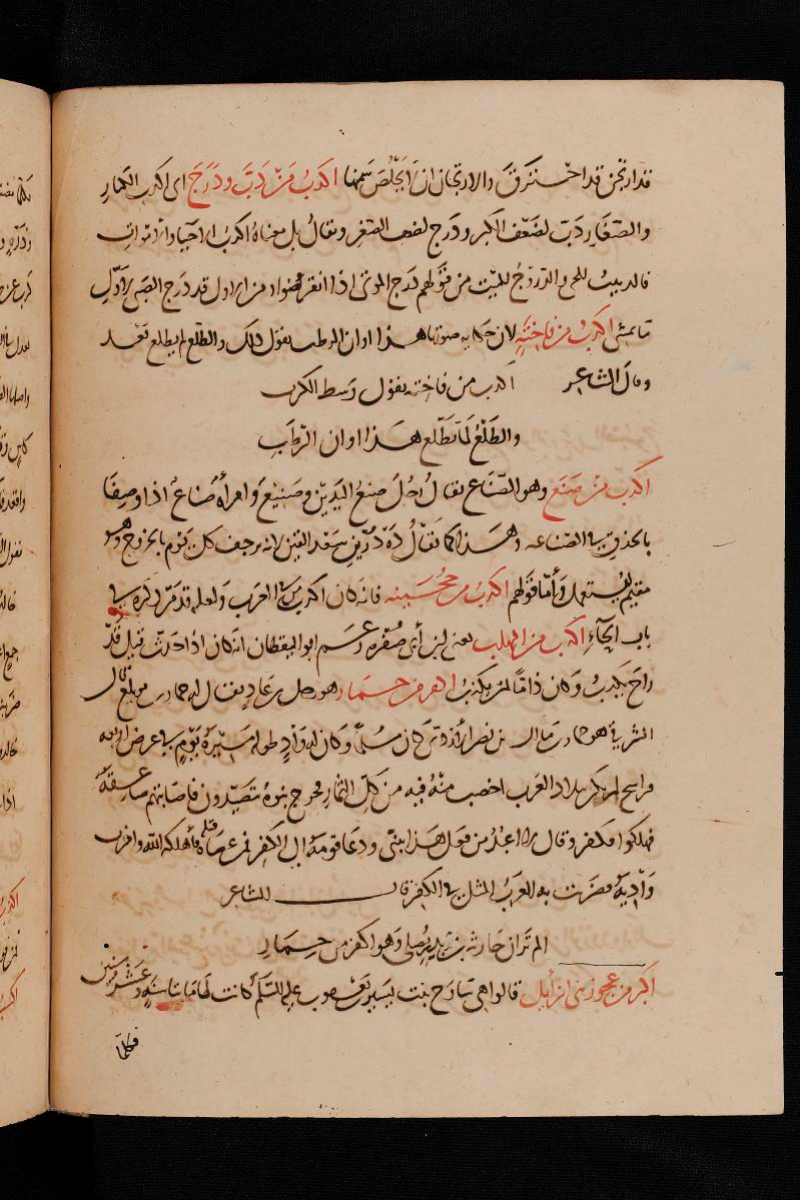 قد ارتجن قد احترق والارتجان ان لا يخلص سمنها اكذب من دب ودرج اى اكذب الكبار
والصغار دب لضعف الكبر ودرج لضعف الصغر ويقال بل معناه اكذب الاحياء والاموات
فالدبيب للحي والدروج للميت من قولهم درج القوم اذا انقرضوا ومن الاول قد درج الصبي لاول
ما يمشي اكذب من فاختة لان حكاية صوتها هذا اوان الرطب تقول ذلك والطلع لم يطلع بعد
وقال الشاعر اكذب من فاخته تقول وسط الكرب
والطلع لما يطلع هذا اوان الرطب
اكذب من صنع وهو الصناع يقال رجل صنع اليدين وصنيع وامرأة صناع اذا وصفا
بالحذق في الصناعه وهذا كما يقال ده درين سعد القين لانه يرجف كل يوم بالخروج وهو
مقيم ليستعمل وأما قولهم اكذب من حجينه فانه كان اكذب من في العرب ولعله قد مر ذكره في
باب الحاء اكذب من المهلب يعني ابن أبي صفره وزعم ابو اليقظان انه كان اذا حدث قيل قد
راح يكذب وكان ذاما لمن يكذب اكفر من حمار وهو رجل من عاد يقال له حمار بن مويلع وقال
الشرقي هو حمار بن مالك بن نصر الازدي كان مسلما وكان له واد طوله مسيرة يوم في عرض اربعه
فراسخ لم يكن ببلاد العرب اخصب منه فيه من كل الثمار فخرج بنوه متصيدون فاصابتهم صاعقة
فهلكوا فكفر وقال لا اعبد من فعل هذا ببني ودعا قومه الى الكفر فمن عصاه قتله فأهلكه الله واخرب
واديه فضربت به العرب المثل في الكفر قال الشاعر
الم تر ان حارثة بن بدر يصلي وهو اكفر من حمار
اكبر من عجوز بني اسرائيل قالوا هي شارح بنت يسير بن يعقوب عليه السلم كانت لها مائتا سنة وعشر سنين
فكلما